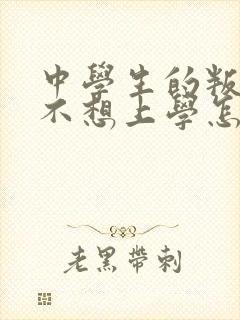 中學生的叛
不想上學怎
老黑帶刺